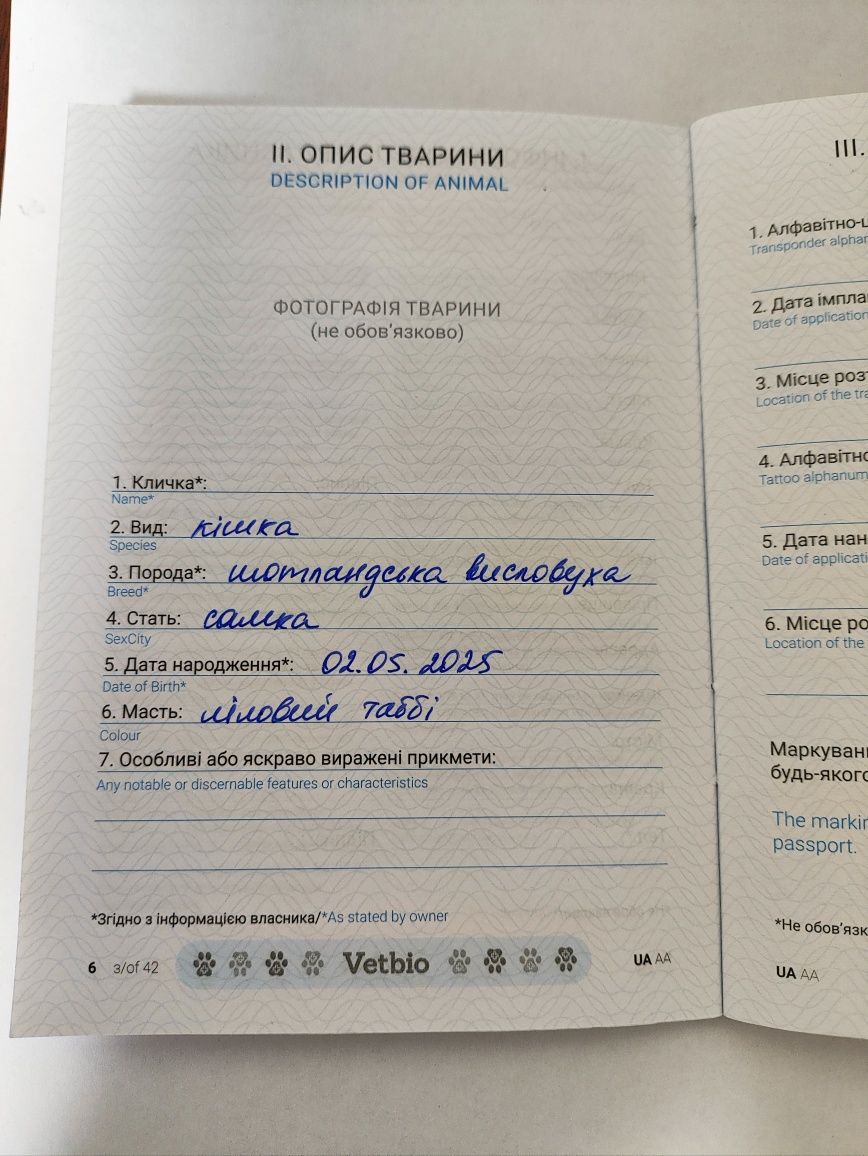 II. ОПИС ТВАРИНИ
DESCRIPTION OF ANIMAL
ФОТОГРАФІЯ ТВАРИНИ
(не обов'язково)
1. Кличка*:
Name*
2. Вид: кішка
Species
3. Порода*: шотландська висловуха
Breed*
4. Стать: самка
SexCity
5. Дата народження*: 02.05.2025
Date of Birth*
6. Масть: ліловий таббі
Colour
7. Особливі або яскраво виражені прикмети:
Any notable or discernable features or characteristics
*Згідно з інформацією власника/*As stated by owner
6 з/of 42 Vetbio UA AA
III.
1. Алфавітно-ц
Transponder alphan
2. Дата імпла
Date of application
3. Місце роз
Location of the tra
4. Алфавітно
Tattoo alphanum
5. Дата нан
Date of applicati
6. Місце ро
Location of the
Маркуван
будь-якого
The markin
passport.
*Не обов'язк
UA AA